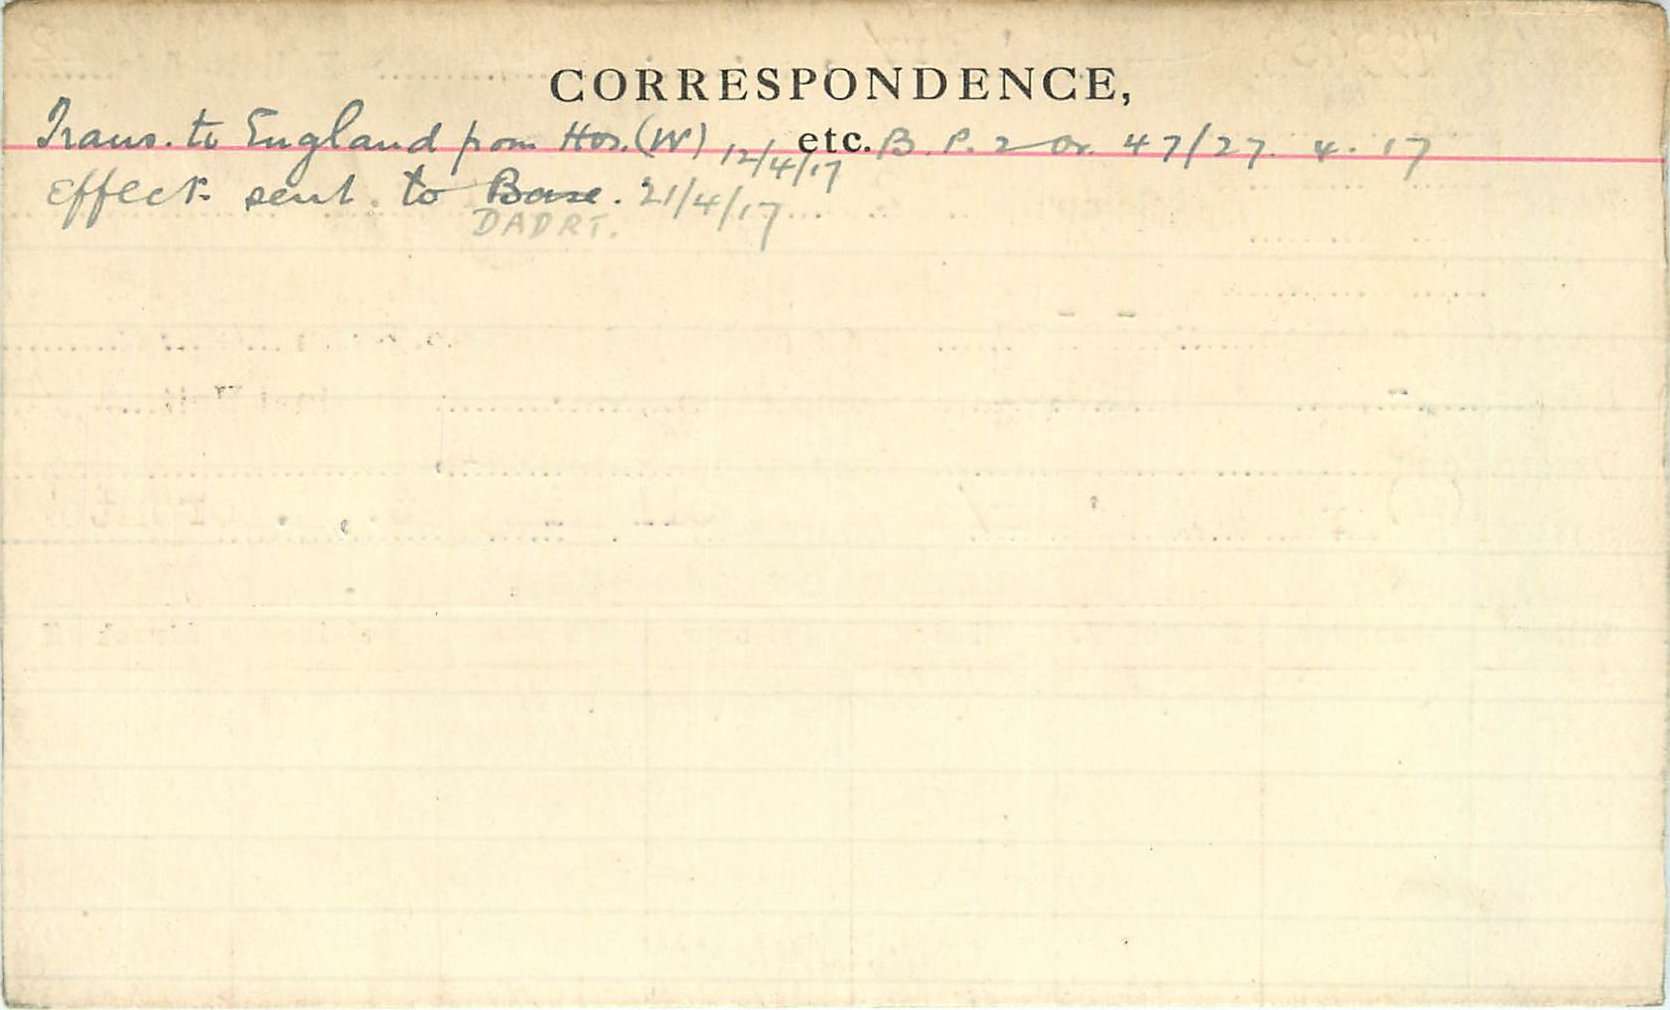 CORRESPONDENCE,
Trans. to England from Hos. (W) 12/4/17 etc. B. P. 2 Or. 47/27. 4. 17
effects sent. to Base. 21/4/17
DADRT.